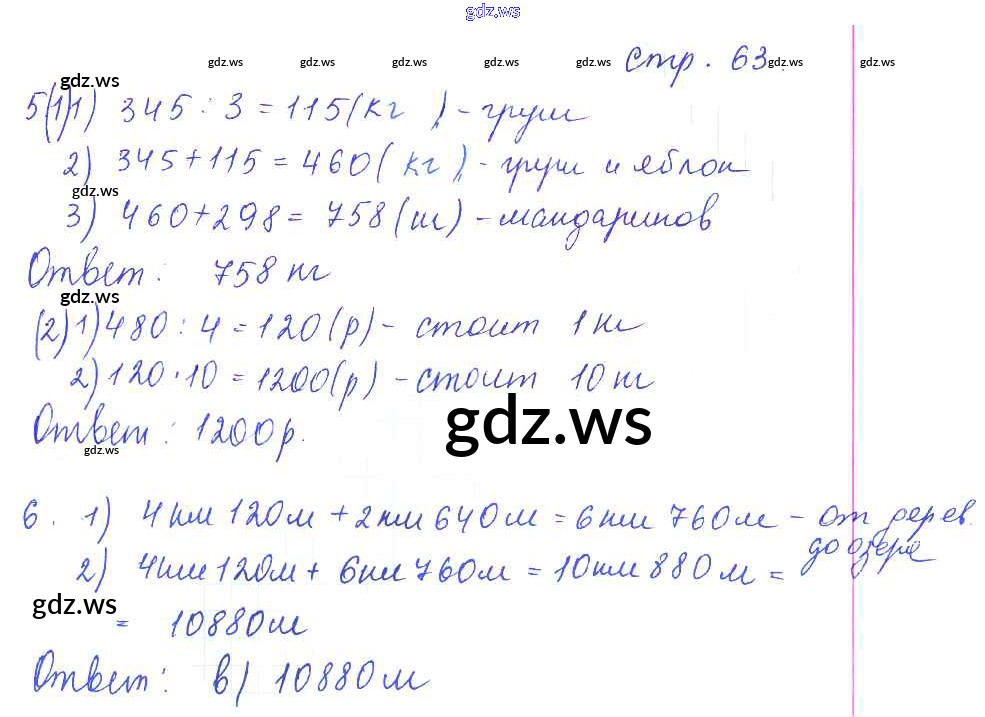 gdz.ws
стр. 63.
gdz.ws gdz.ws gdz.ws gdz.ws gdz.ws gdz.ws gdz.ws
gdz.ws
5(1)1) 345 : 3 = 115 (кг) - груш
2) 345 + 115 = 460 (кг) - груш и яблок
gdz.ws
3) 460 + 298 = 758 (кг) - мандаринов
Ответ: 758 кг
gdz.ws
(2) 1) 480 : 4 = 120 (р) - стоит 1 кг
2) 120 · 10 = 1200 (р) - стоит 10 кг
gdz.ws
Ответ: 1200 р.
gdz.ws
6. 1) 4 км 120 м + 2 км 640 м = 6 км 760 м - от дерев.
до озера
2) 4 км 120 м + 6 км 760 м = 10 км 880 м =
gdz.ws
= 10880 м
Ответ: в) 10880 м